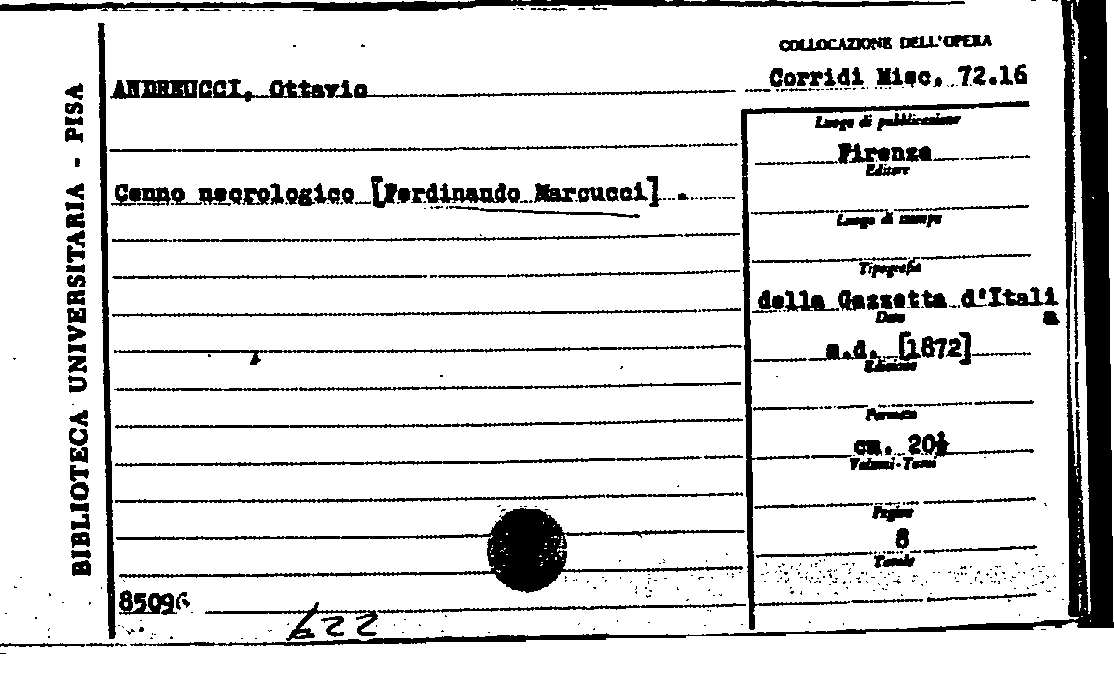 BIBLIOTECA UNIVERSITARIA - PISA
COLLOCAZIONE DELL'OPERA
Corridi Misc. 72.16
ANDREUCCI, Ottavio
Luogo di pubblicazione
Firenze
Editore
Cenno necrologico [Ferdinando Marcucci] .
Luogo di stampa
Tipografia
della Gazzetta d'Itali
a
Data
s.d. [1872]
Edizione
Formato
cm. 20½
Volumi - Tomi
Pagine
8
Tavole
85096
622